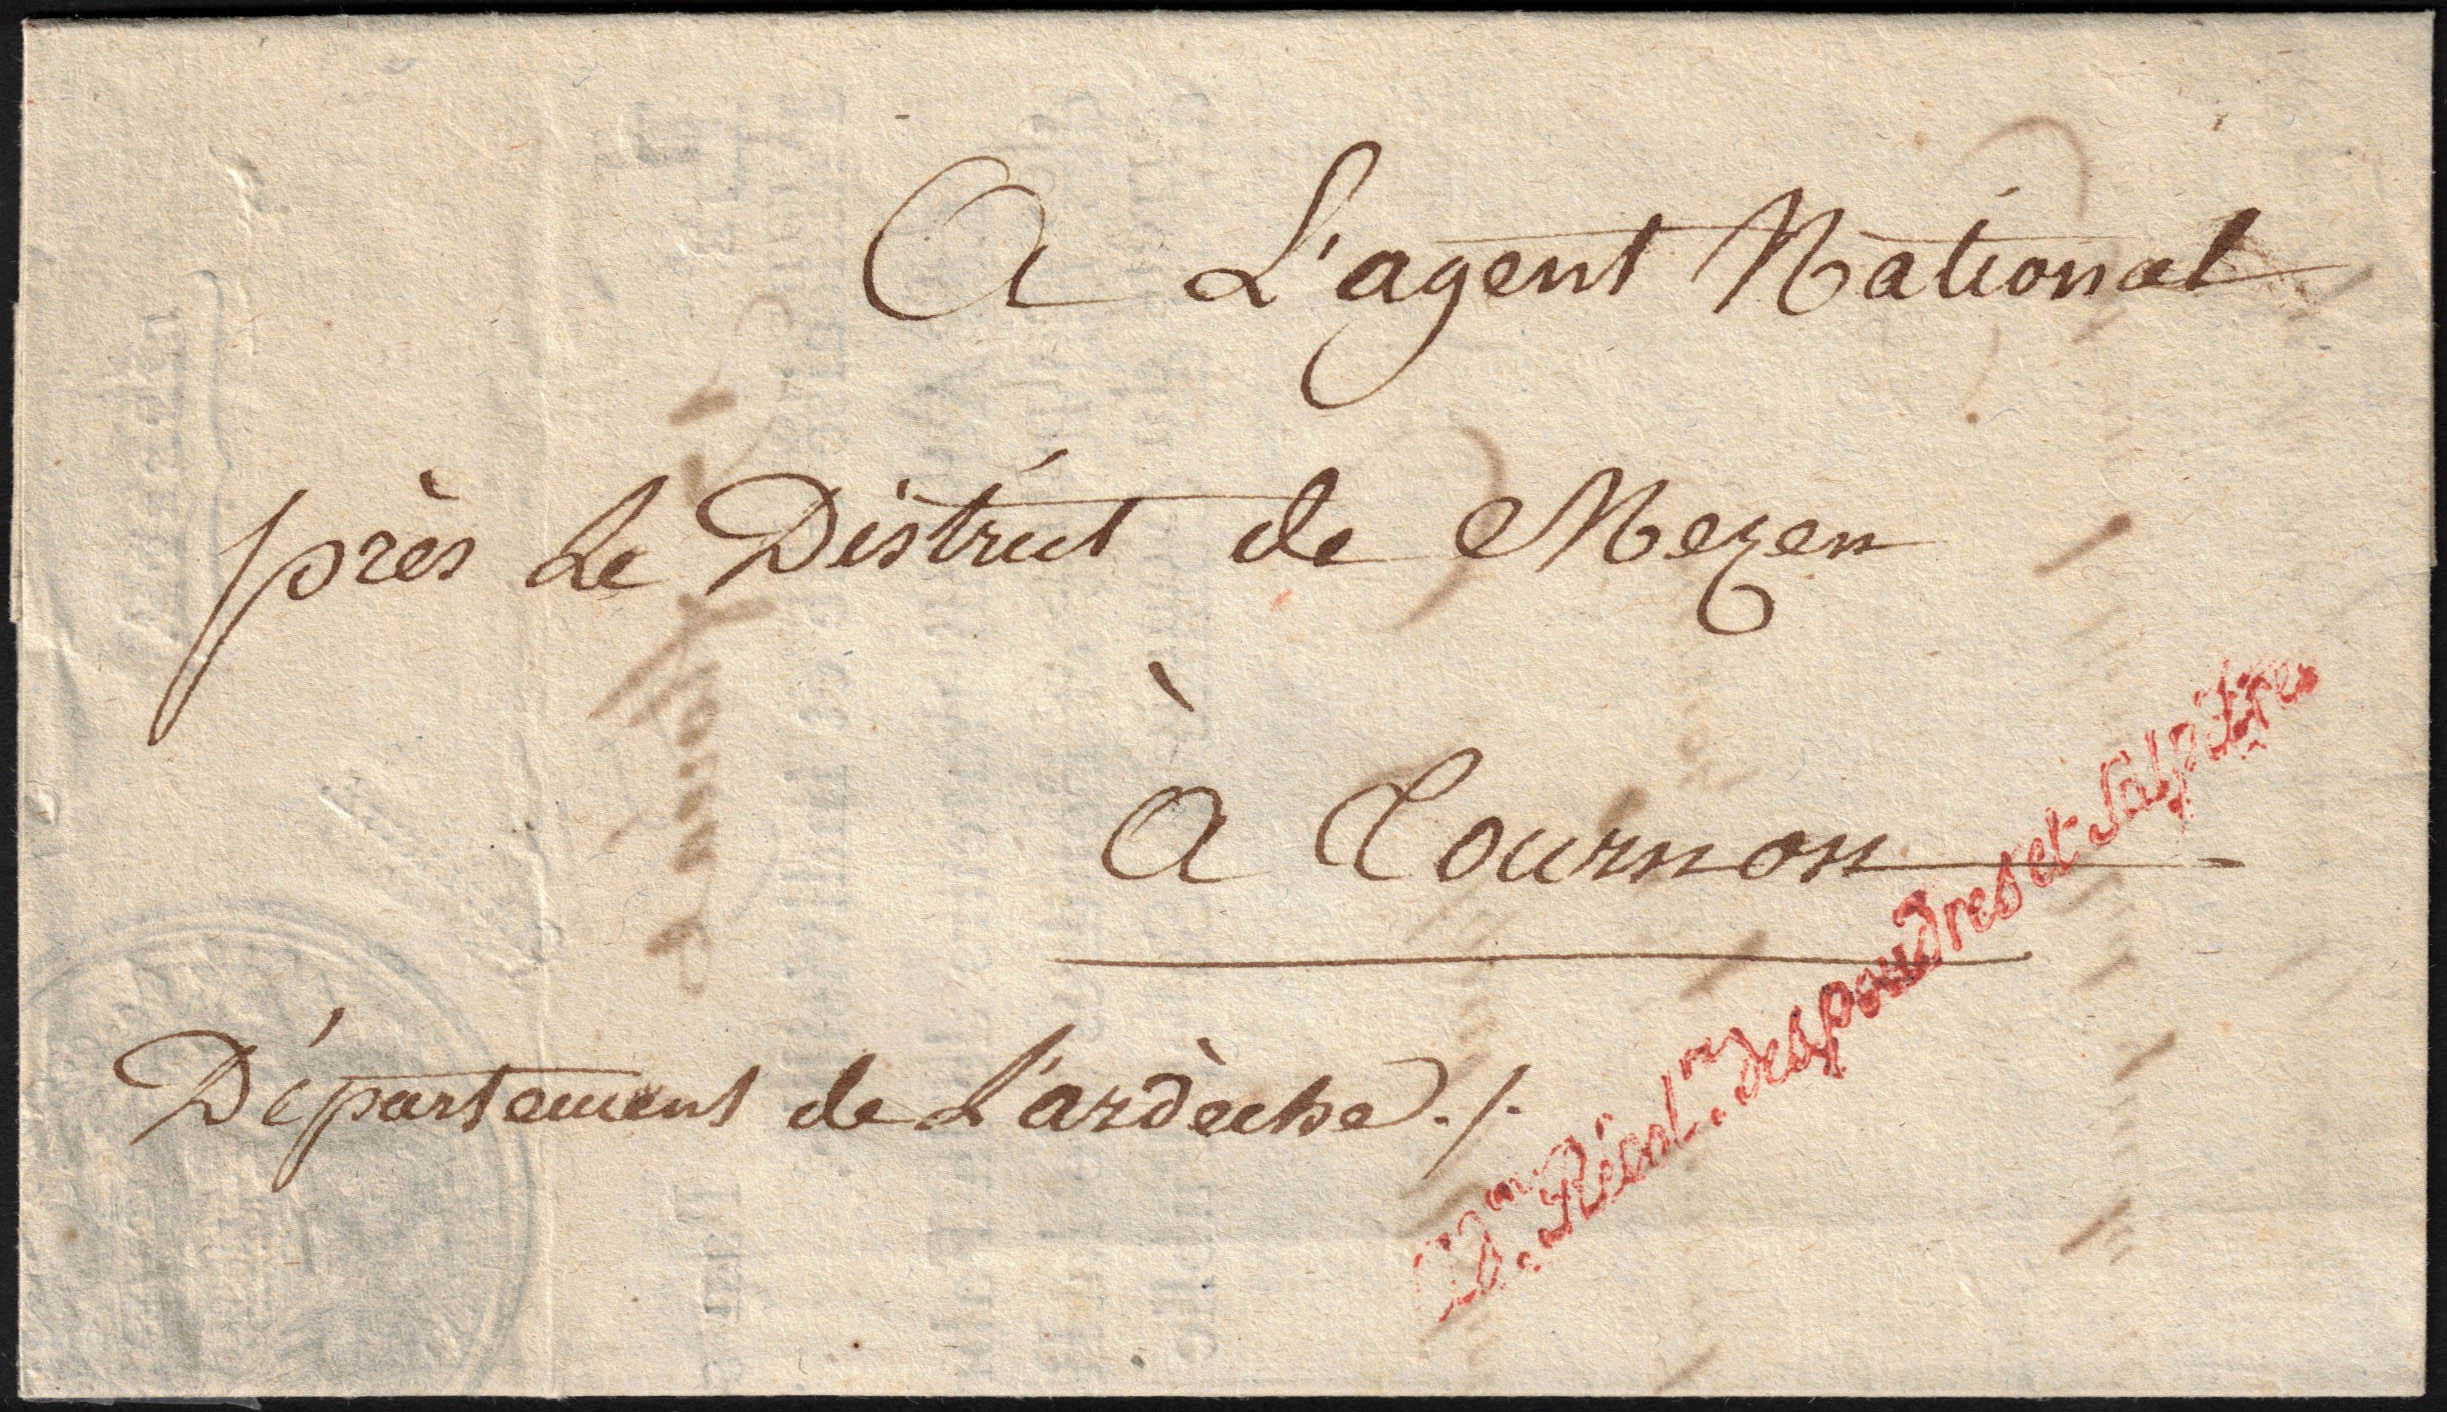 A L'agent National
près Le District de Mezen
à Tournon
Département de L'ardèche ./.
Révol.re des poudres et Salpêtres